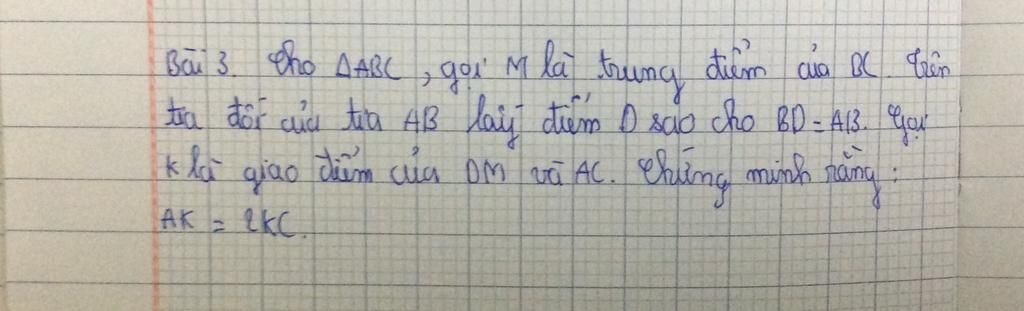 Bài 3. Cho ΔABC, gọi M là trung điểm của BC. Trên
tia đối của tia AB lấy điểm D sao cho BD = AB. Gọi
K là giao điểm của DM và AC. Chứng minh rằng:
AK = 2KC.